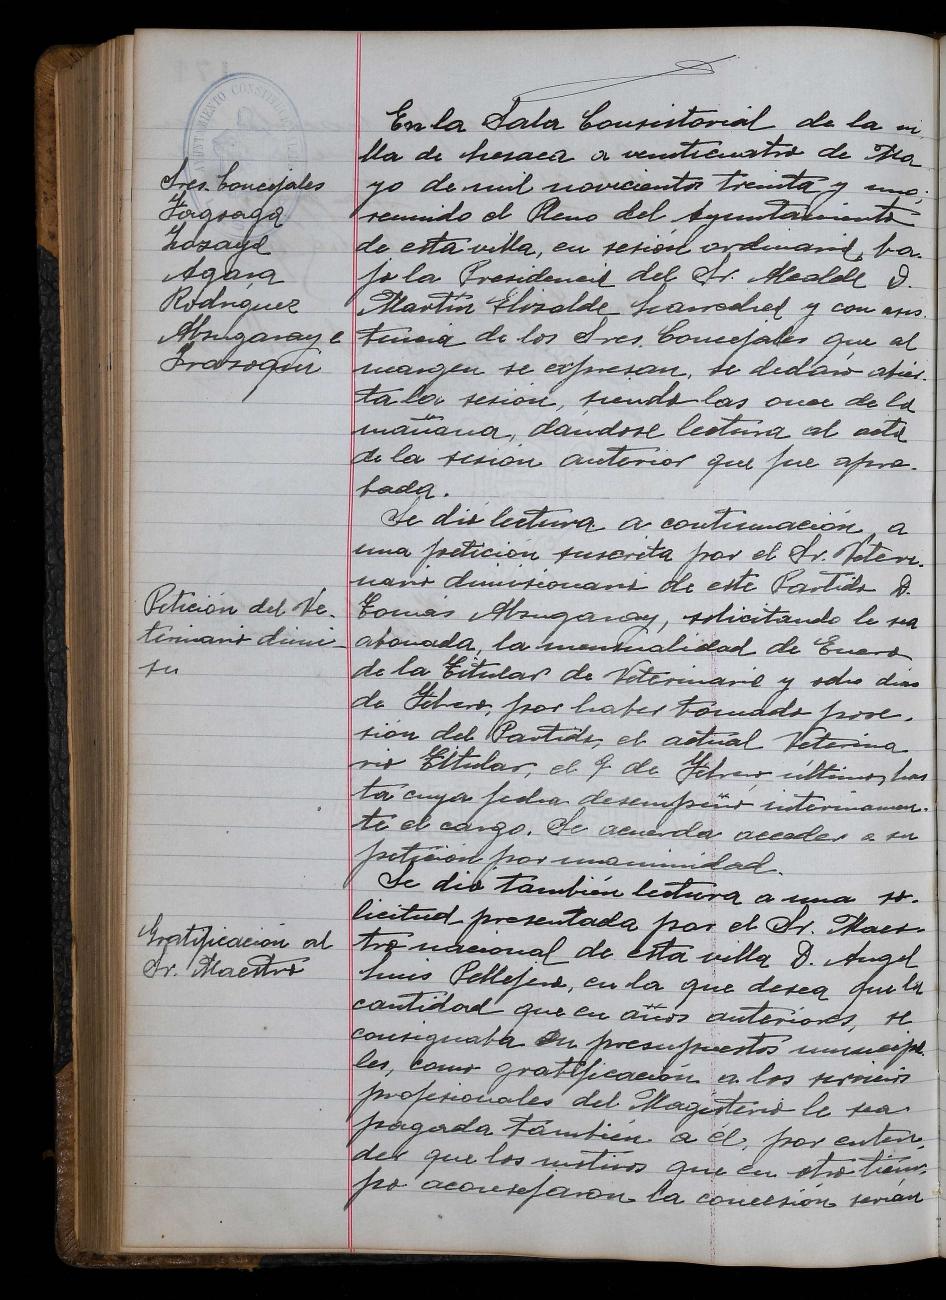 AYUNTAMIENTO CONSTITUCIONAL
Sres. Concejales
Fagoaga
Lozayd
Agara
Rodríguez
Abngaray e
Irasoqui
En la Sala Consistorial de la vi
lla de Lesaca a venticuatro de Ma
yo de mil novecientos treinta y uno,
reunido el Pleno del Ayuntamiento
de esta villa, en sesión ordinaria, ba-
jo la Presidencia del Sr. Alcalde D.
Martín Elizalde y con asis-
tencia de los Sres. Concejales que al
margen se expresan, se declaró abier-
ta la sesión, siendo las once de la
mañana, dándose lectura al acta
de la sesión anterior que fue apro-
bada.
Se dió lectura a continuación, a
una petición suscrita por el Sr. Veteri-
nario dimisionario de este Partido D.
Tomás Abngaray, solicitando le sea
abonada, la mensualidad de Enero
de la Titular de Veterinaria y ocho dias
de Febrero, por haber tomado pose-
sión del Partido, el actual Veterina
rio Titular, el 9 de Febrero último, has
ta cuya fecha desempeñó interinamen-
te el cargo. Se acuerda acceder a su
petición por unanimidad.
Petición del Ve-
terinario dimi-
su
Se dió también lectura a una so-
licitud presentada por el Sr. Maes-
tro nacional de esta villa D. Angel
Luis Pellejero, en la que desea que la
cantidad que en años anteriores, se
consignaba en presupuestos municipa
les, como gratificación a los servicios
profesionales del Magisterio le sea
pagada también a él, por enten-
der que los motivos que en otro tiem-
po aconsejaron la concesión serían
Gratificación al
Sr. Maestro